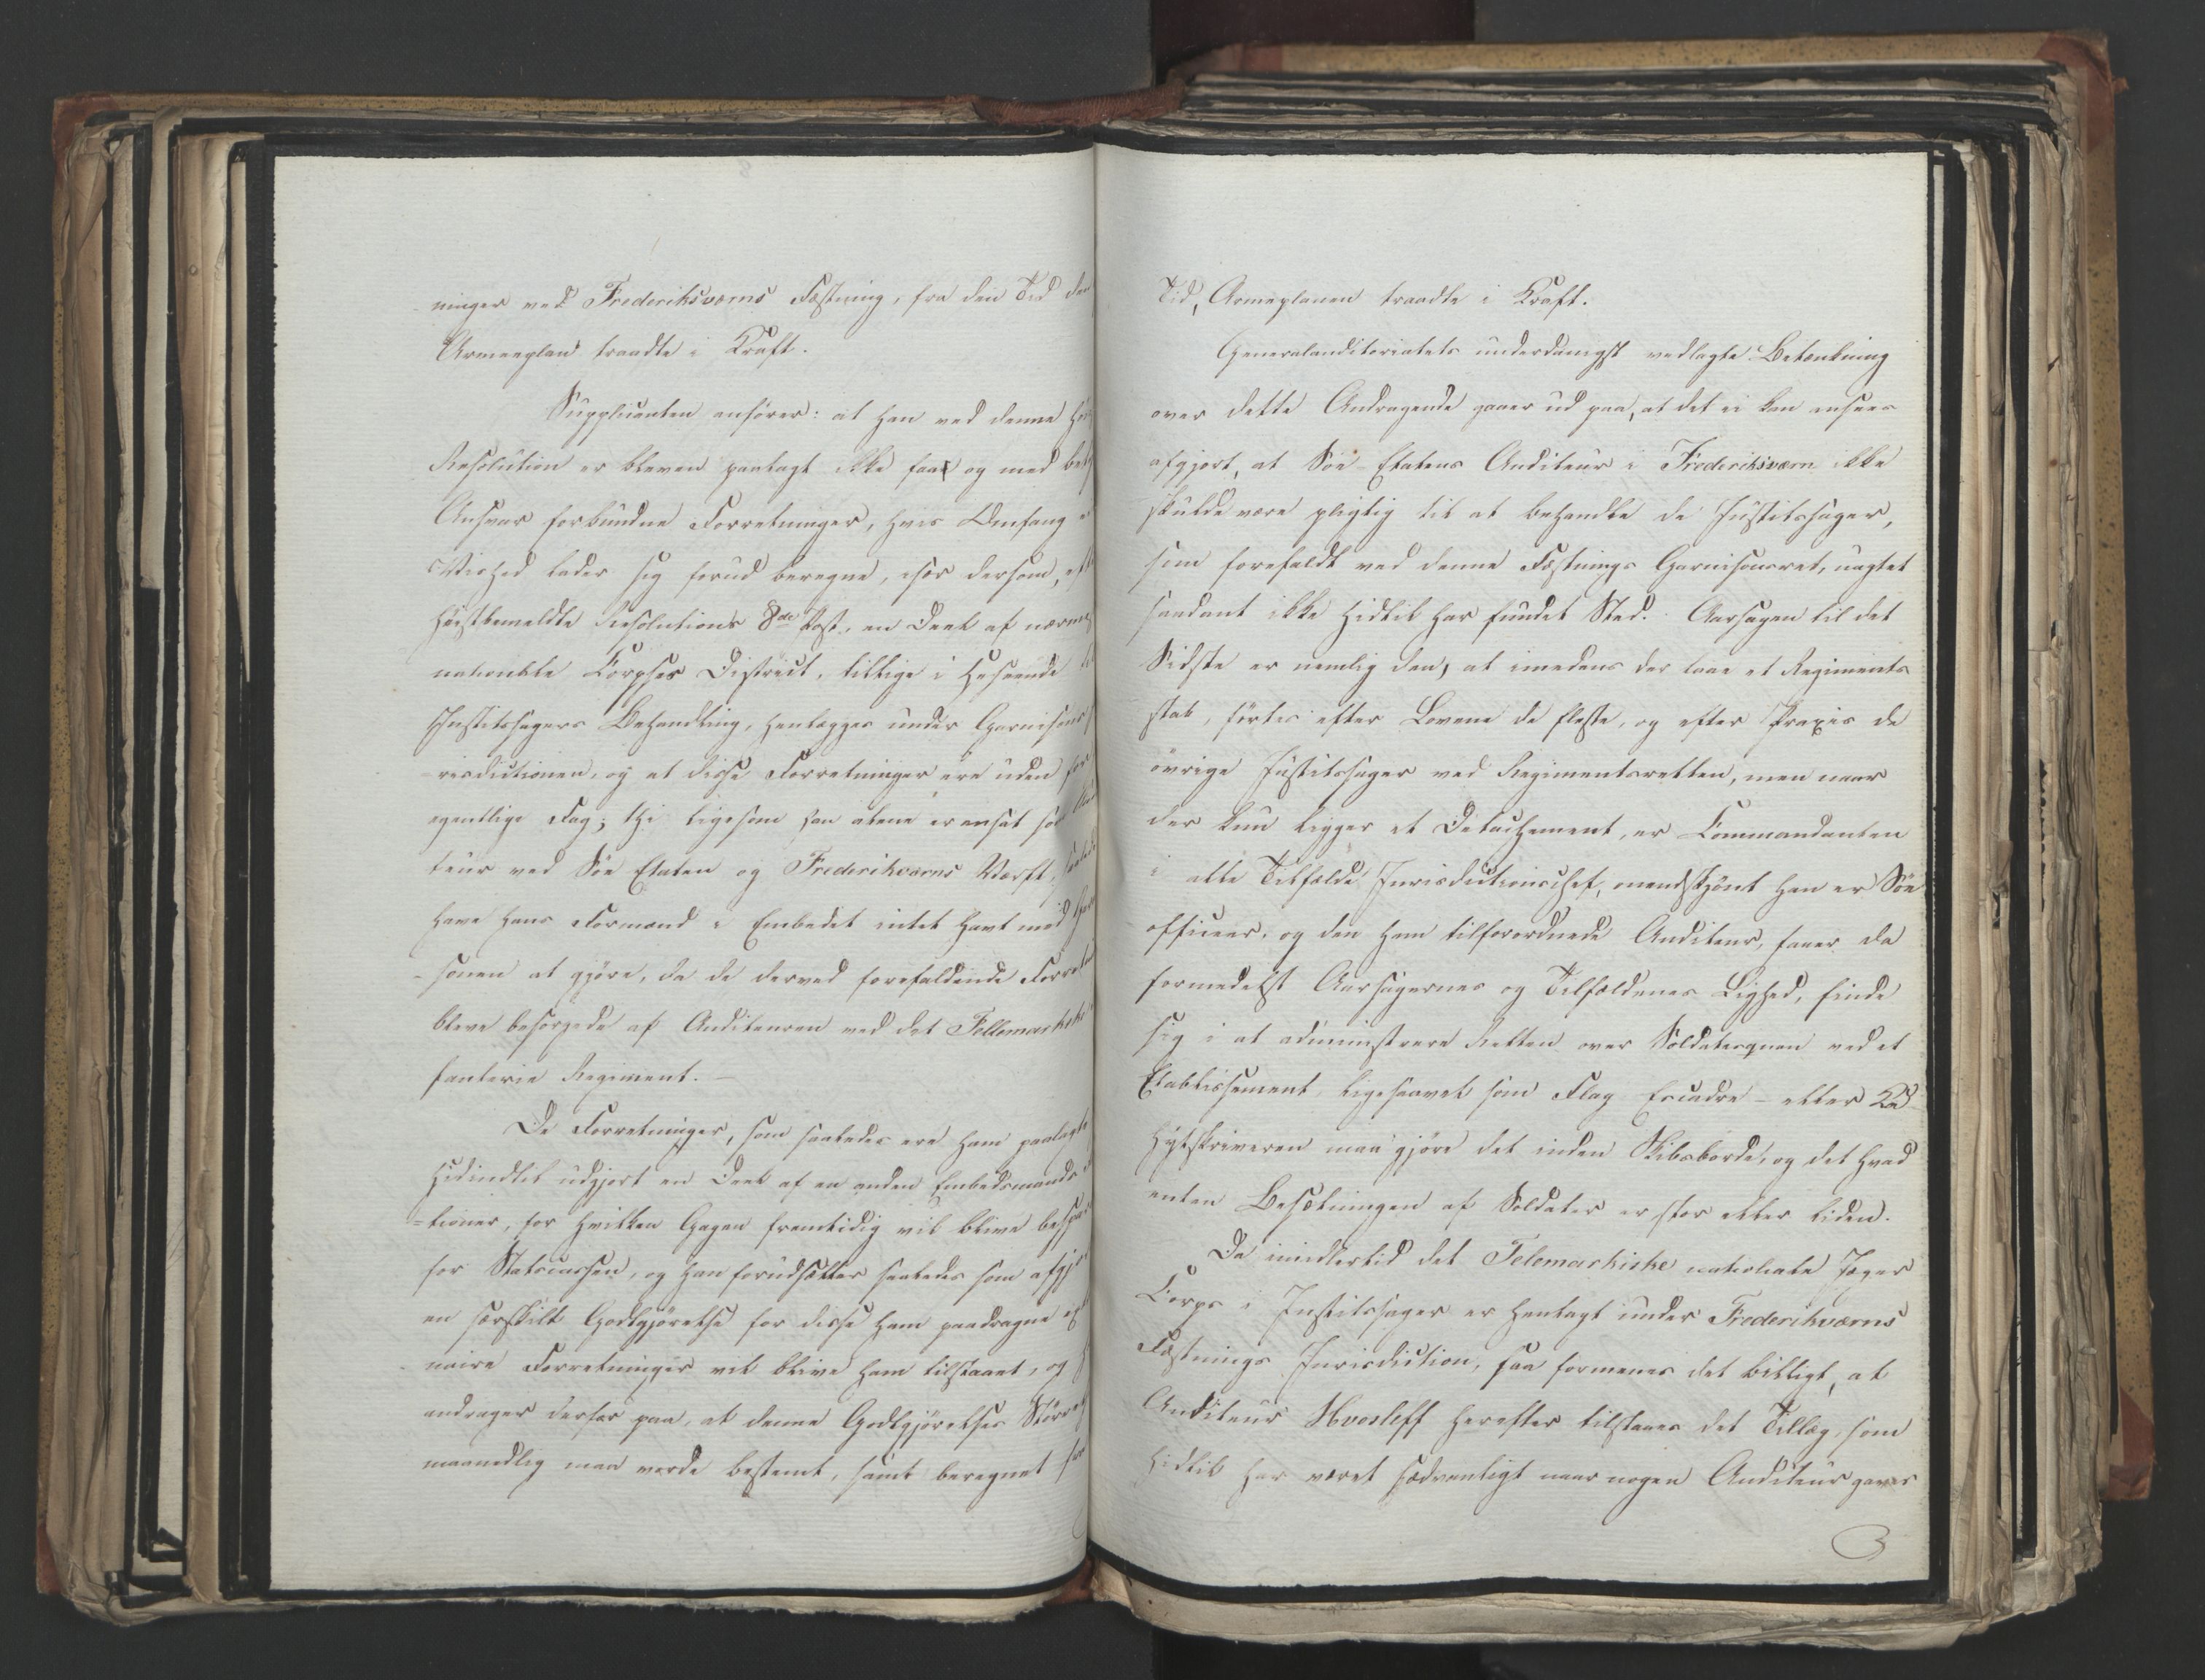 ninger ved Frederiksværns Fæstning, fra den Tid den
Armeeplan traadte i Kraft.
Supplicanten anfører: at han ved denne
Resolution er bleven paalagt ikke faae og med
Ansvar forbundne Forretninger, hvis Omfang
Vished lader sig forud beregne, især dersom,
høistbemeldte Resolutions 8de Post, en Deel af
nationale Corpses District, tillige i Henseende
Justitssagers Behandling, henlægges under
risdictionen, og at disse Forretninger ere uden for
egentlige Fag; thi ligesom han alene er ansat som
teur ved Søe Etaten og Frederikværns Værft,
have hans Formænd i Embedet intet havt med
sonen at gjøre, da de derved forefaldende
bleve besørgede af Auditeuren ved det Tellemarkske
fanterie Regiment. —
De Forretninger, som saaledes ere ham paalagte
hidindtil udgjort en Deel af en anden Embedsmands
=tioner, for hvilken Gagen fremtidig vil blive
for Statscassen, og han forudsætter saaledes som
en særskilt Godtgjørelse for disse ham paadragne
naire Forretninger vil blive ham tilstaaet, og
andrager derfor paa, at denne Godtgjørelses
maanedlig maa vorde bestemt, samt beregnet fra
Tid, Armeplanen traadte i Kraft.
Generalauditoriatets underdanigst vedlagte Betænkning
over dette Andragende gaaer ud paa, at det ei kan ansees
afgjort, at Søe-Etatens Auditeur i Frederiksværn ikke
skulde være pligtig til at behandle de Justitssager,
som forefaldt ved denne Fæstnings Garnisonsret, uagtet
saadant ikke hidtil har fundet Sted. Aarsagen til det
Sidste er nemlig den, at imedens der laae et Regiments
stab, førtes efter Lovene de fleste, og efter Praxis de
øvrige Justitssager ved Regimentsretten, men naar
der kun ligger et Detachement, er Commandanten
i alle Tilfælde Jurisdictionschef, omendskjønt han er Søe
officeer, og den ham tilforordnede Auditeur, faaer da
formedelst Aarsagernes og Tilfældenes Lighed, finde
sig i at administrere Retten over Soldatesquen ved et
Etablissement, ligesaavel som Flag Escadre- eller Ka
hytskriveren maa gjøre det inden Skibsborde, og det hvad
enten Besætningen af Soldater er stor eller liden.
Da imidlertid det Telemarkiske nationale Jæger
Corps i Justitssager er henlagt under Frederikværns
Fæstnings Jurisdiction, saa formenes det billigt, at
Auditeur Hvosleff herefter tilstaaes det Tillæg, som
hidtil har været sædvanligt naar nogen Auditeur gaves